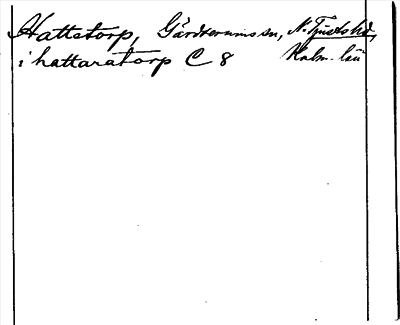 Hattetorp, Gärdserums sn, N. Tjusts hd,
i hattaratorp C 8 Kalm. län